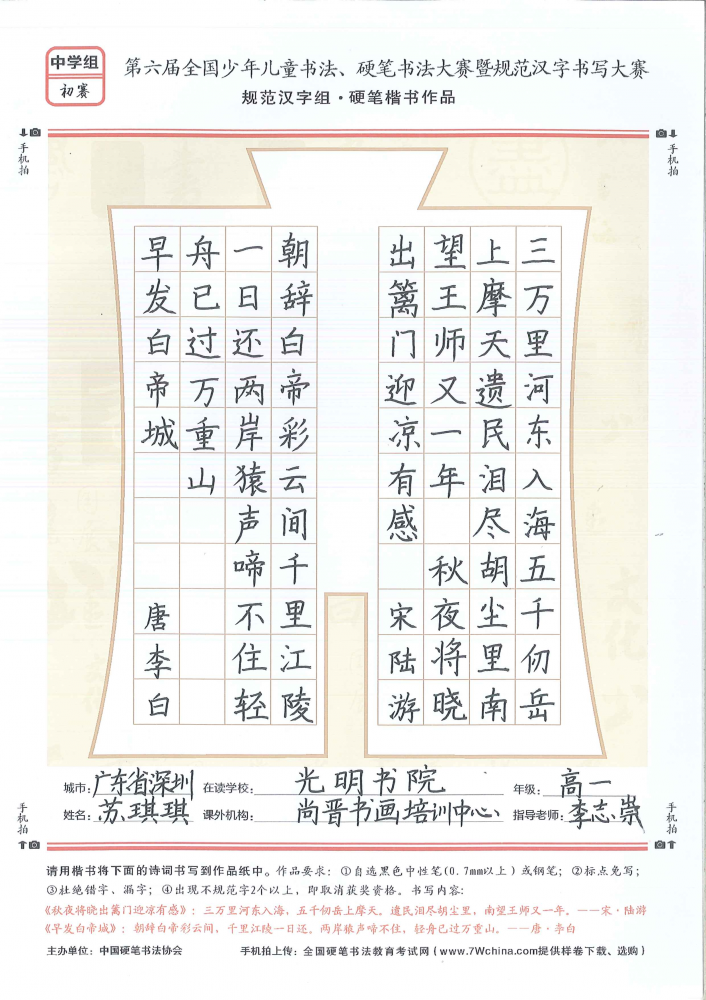 中学组
初赛
第六届全国少年儿童书法、硬笔书法大赛暨规范汉字书写大赛
规范汉字组·硬笔楷书作品
手机拍
手机拍
三万里河东入海五千仞岳
上摩天遗民泪尽胡尘里南
望王师又一年 秋夜将晓
出篱门迎凉有感 宋陆游
朝辞白帝彩云间千里江陵
一日还两岸猿声啼不住轻
舟已过万重山
早发白帝城 唐李白
城市：广东省深圳 在读学校：光明书院 年级：高一
姓名：苏琪琪 课外机构：尚晋书画培训中心 指导老师：李志崇
手机拍
手机拍
请用楷书将下面的诗词书写到作品纸中。作品要求：①自选黑色中性笔(0.7mm以上)或钢笔；②标点免写；
③杜绝错字、漏字；④出现不规范字2个以上，即取消获奖资格。书写内容：
《秋夜将晓出篱门迎凉有感》：三万里河东入海，五千仞岳上摩天。遗民泪尽胡尘里，南望王师又一年。——宋·陆游
《早发白帝城》：朝辞白帝彩云间，千里江陵一日还。两岸猿声啼不住，轻舟已过万重山。——唐·李白
主办单位：中国硬笔书法协会 手机拍上传：全国硬笔书法教育考试网(www.7Wchina.com提供样卷下载、选购)